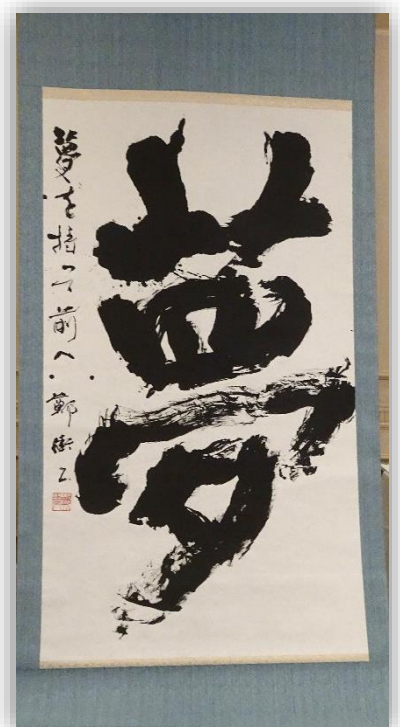 夢
夢を持って前へ・・鄭